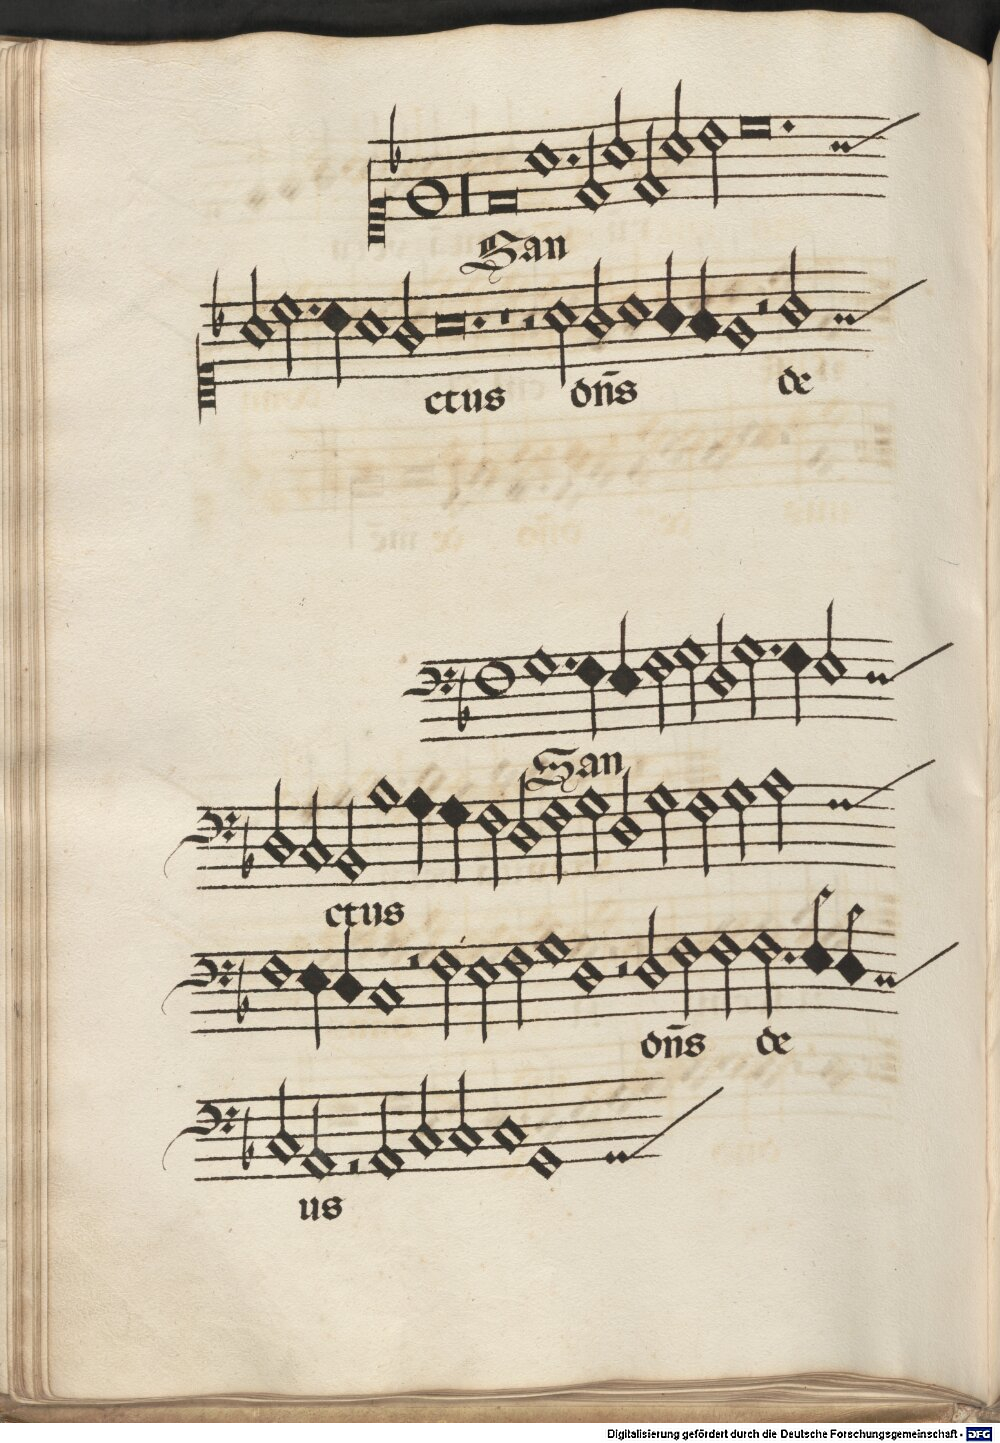 San
ctus dn̄s de
San
ctus
dn̄s de
us
Digitalisierung gefördert durch die Deutsche Forschungsgemeinschaft - DFG